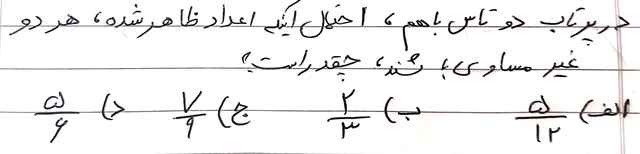 در پرتاب دو تاس باهم، احتمال اینکه اعداد ظاهر شده، هر دو
غیر مساوی باشند، چقدر است؟
الف) ۵/۱۲ ب) ۲/۳ ج) ۷/۹ د) ۵/۶